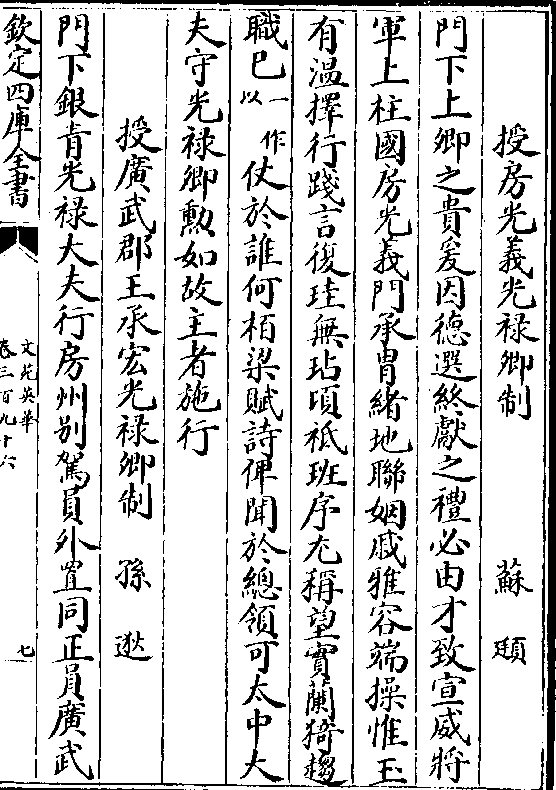 授房光義光禄卿制 蘇頲
門下上卿之貴爰因德選終獻之禮必由才致宣威將
軍上柱國房光義門承胄緒地聯姻戚雅容端操惟玉
有温擇行踐言復珪無玷頃祗班序尤稱望實蘭猗趨
職已一作以仗於誰何栢梁賦詩俾聞於總領可太中大
夫守光禄卿勲如故主者施行
授廣武郡王承宏光禄卿制 孫逖
門下銀青光禄大夫行房州别駕員外置同正員廣武
欽定四庫全書
文苑英華
卷三百九十六
七